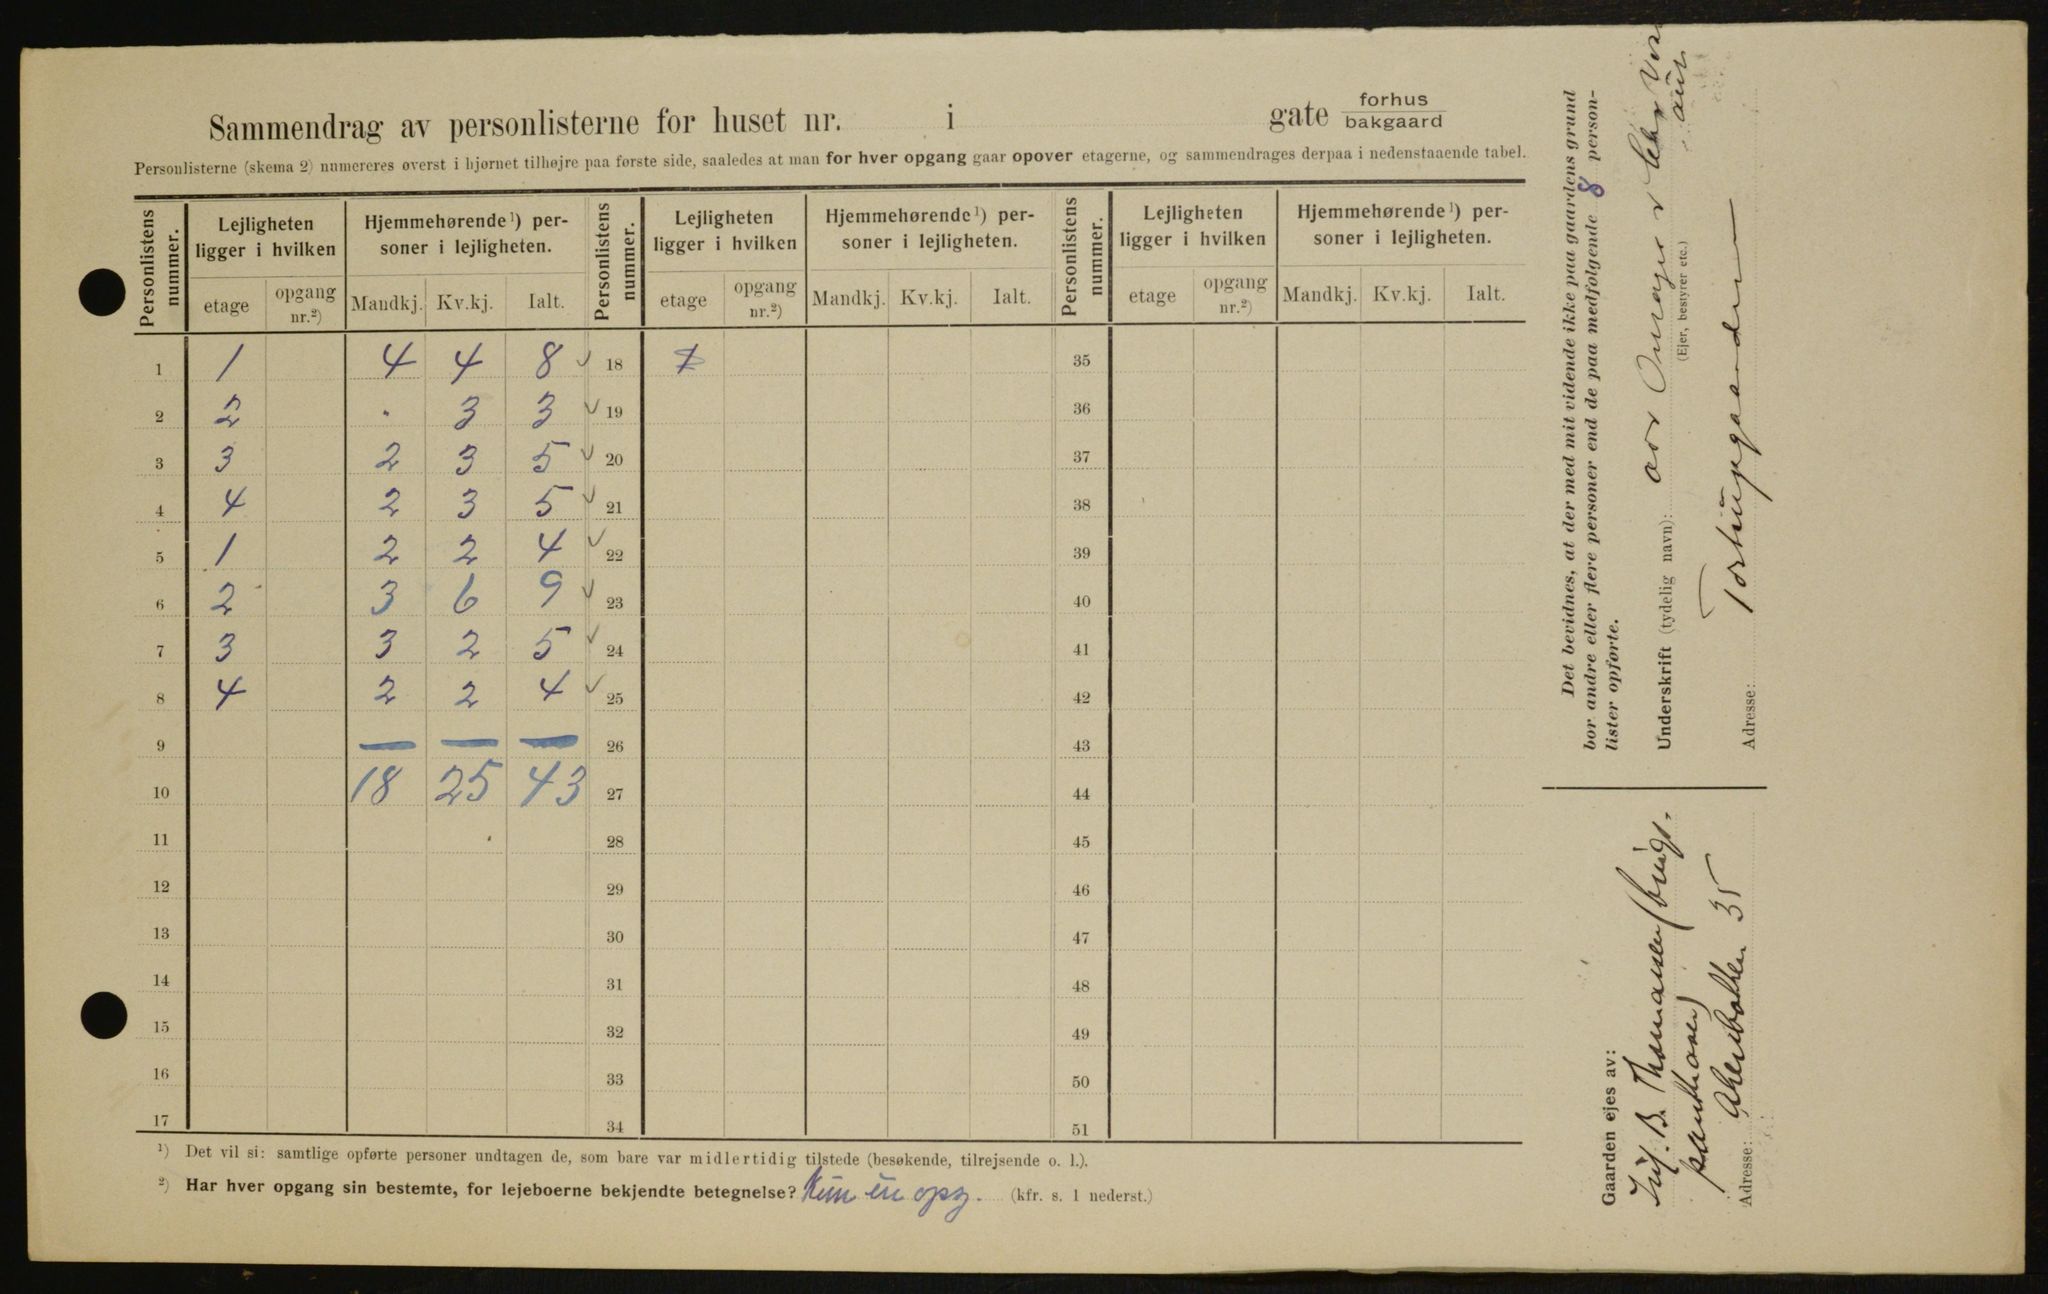 Sammendrag av personlisterne for huset nr. i gate forhus bakgaard
Personlisterne (skema 2) numereres øverst i hjørnet tilhøjre paa første side, saaledes at man for hver opgang gaar opover etagerne, og sammendrages derpaa i nedenstaaende tabel.
Personlistens nummer. Lejligheten ligger i hvilken Hjemmehørende¹) personer i lejligheten. Personlistens nummer. Lejligheten ligger i hvilken Hjemmehørende¹) personer i lejligheten. Personlistens nummer. Lejligheten ligger i hvilken Hjemmehørende¹) personer i lejligheten.
etage opgang nr.²) Mandkj. Kv.kj. Ialt. etage opgang nr.²) Mandkj. Kv.kj. Ialt. etage opgang nr.²) Mandkj. Kv.kj. Ialt.
1 1 4 4 8 18 35
2 2 . 3 3 19 36
3 3 2 3 5 20 37
4 4 2 3 5 21 38
5 1 2 2 4 22 39
6 2 3 6 9 23 40
7 3 3 2 5 24 41
8 4 2 2 4 25 42
9 26 43
10 18 25 43 27 44
11 28 45
12 29 46
13 30 47
14 31 48
15 32 49
16 33 50
17 34 51
¹) Det vil si: samtlige opførte personer undtagen de, som bare var midlertidig tilstede (besøkende, tilrejsende o. l.).
²) Har hver opgang sin bestemte, for lejeboerne bekjendte betegnelse? Kun én opg. (kfr. s. 1 nederst.)
Det bevidnes, at der med mit vidende ikke paa gaardens grund
bor andre eller flere personer end de paa medfølgende 8 person-
lister opførte.
Underskrift (tydelig navn):
(Ejer, bestyrer etc.)
Adresse: Tostrupgaarden
Gaarden ejes av:
B. Thomassen
Adresse: Akersbakken 35